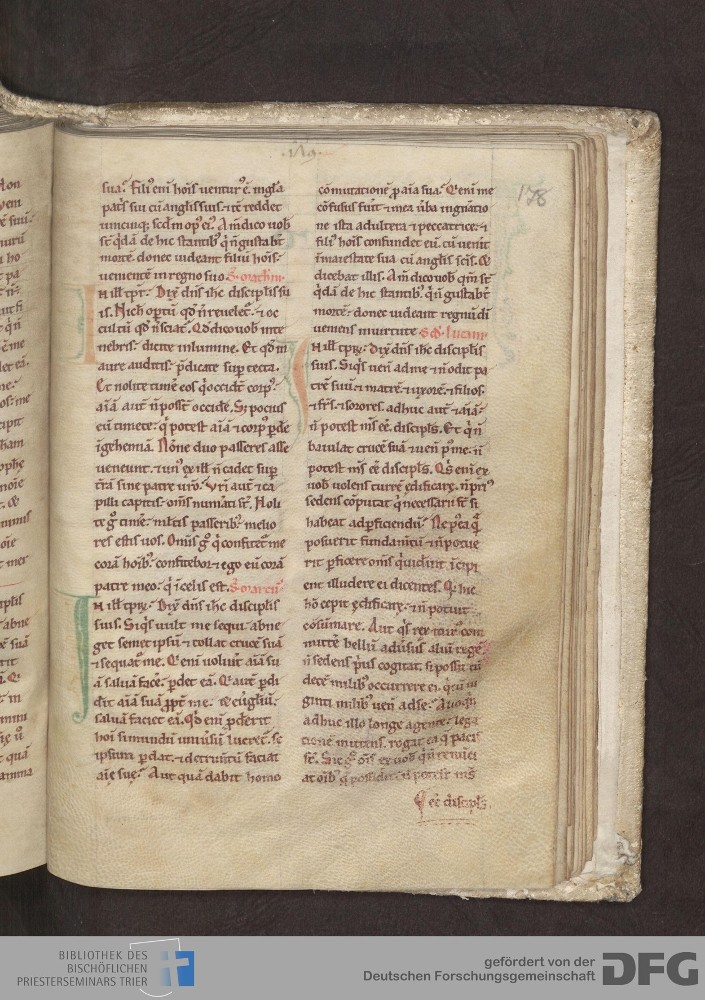 178
sua. Fili᷒ eni hoīs ventur᷒ ē. ingl̄a
patˢ sui cū anglis suis. ⁊ tē reddet
unicuiq; scdm op᷒ ei᷒. Am̄ dico uob
sī qdā de hic stantib᷒ q̄ n̄ gustabt
mortē. donec uideant filiū hoīs.
uenientē in regno suo. S. mathm.
In ill tp̄r. Dix̄ dn̄s ih̄c discipĺis su
is. Nich opertū qd n̄ reuelet᷑. ⁊ oc
cultū qd n̄ sciat᷑. Qd dico uob in te
nebris. dicite in lumine. Et qd in
aure auditis. p̄dicate sup tecta.
Et nolite timē eos q̄ occidt corp᷒.
aīā aut n̄ posst occidē. S; pocius
eū timete. q̄ potest aīā ⁊ corp᷒ pdē
ī gehennā. Nōne duo passeres asse
ueneunt. ⁊ un᷒ ex ill n̄ cadet sup
trā sine patre uro. Urī aut ⁊ ca
pilli capitis. om̄s numati st. Noli
te g° timē. multis passerib᷒ melio
res estis uos. Om̄s g° q̄ confitet᷑ me
corā hoīb᷒. confitebor ⁊ ego eū corā
patre meo. q̄ ī celis est. S. marcū.
In ill tp̄r. Dix̄ dn̄s ih̄c discipĺis
suis. Siq̄s uult me sequi. abne
get semet ipsū ⁊ tollat crucē suā
⁊ sequat᷑ me. Q eni voluit aīā su
ā saluā facē. pdet eā. Q aut pdi
dit aīā suā ꝓpt me. & euglīū.
saluā faciet eā. Qd eni ꝓderit
hoī si mundū uniūsū lucret᷑. &
ipsum pdat. ⁊ detrimtū faciat
aīę suę. Aut quā dabit homo
cōmutationē p aīa sua. Q eni me
cōfusus fuit ⁊ mea ūba in gnatio
ne ista adultera ⁊ peccatrice. ⁊
fili᷒ hoīs confundet eū. cū uenit
in maiestate sua cū anglis sc̄is. &
dicebat illis. Am̄ dico uob qm̄ st
qdā de hic stantib᷒. q̄ n̄ gustabt
mortē. donec uideant regnū dī
ueniens in uirtute. S. Lucam.
In ill tp̄r. Dix̄ dn̄s ih̄c discipĺis
suis. Siq̄s uen̄ ad me ⁊ n̄ odit pa
trē suū ⁊ matrē ⁊ uxorē. ⁊ filios.
⁊ frs. ⁊ sorores. adhuc aut ⁊ aīā.
n̄ potest ms ēē discipĺs. Et q̄ n̄
baiulat crucē suā ⁊ uen̄ p᷒ me. n̄
potest ms ēē discipĺs. Q̄s eni ex
uob uolens turrē edificare. n̄ pri᷒
sedens cōputat q̄ necessarii st si
habeat ad pficiendū. Ne p᷒ea q̄
posuerit fundamtū ⁊ n̄ potue
rit pficere. om̄s q̄ uidīnt īcipi
ent illudere ei dicentes. Q hic
hō cepit ędificare. ⁊ n̄ potuit
cōsummare. Aut q̄s rex itur᷒ com
mittē bellū adūsus aliū regē
n̄ sedens p̄us cogitat. si possit cū
decē milib᷒ occurrere ei. q̄ cū ui
ginti milib᷒ uen̄ ad se. Alioqn
adhuc illo longe agente. lega
tionē mittens. rogat ea q̄ pacis
st. Sic g° om̄s ex uob q̄ n̄ renūci
at oīb᷒ q̄ possidet. n̄ potest ms
ēē discipĺs.
BIBLIOTHEK DES
BISCHÖFLICHEN
PRIESTERSEMINARS TRIER
gefördert von der
Deutschen Forschungsgemeinschaft
DFG